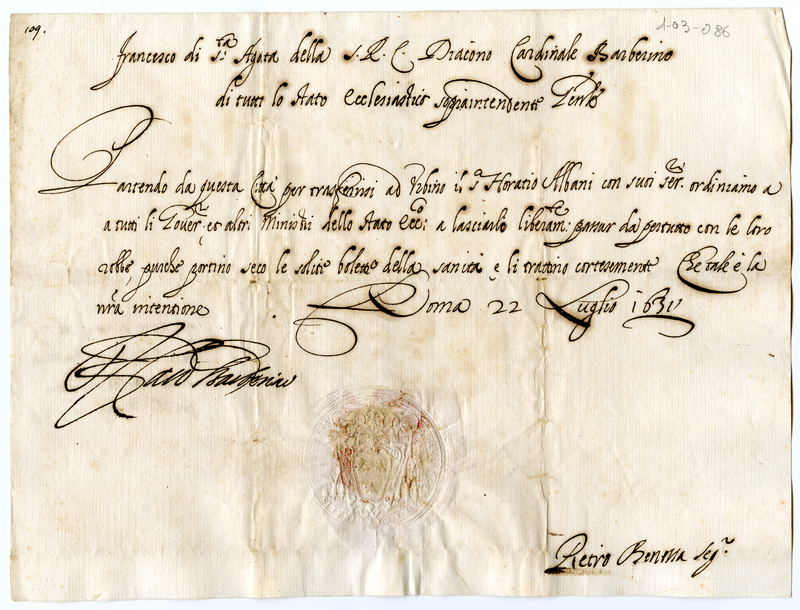 109.
1-03-086
Francesco di S.ta Agata della S. R. C. Diacono Cardinale Barberino
di tutto lo Stato Ecclesiastico Genle
Partendo da questa Città per trasferirsi ad Urbino il Sr Horatio Albani con suoi Serri. ordiniamo a
a tutti li Goverri. et altri Ministri dello Stato Ecco: a lasciarlo liberamte: passar da pertutto con le loro
robbe, purche portino seco le solite bolette della sanità e li trattino cortesemente Che tale è la
nrã intentione Roma 22 Luglio 1631
Card Barberino
Pietro Benessa Segr.